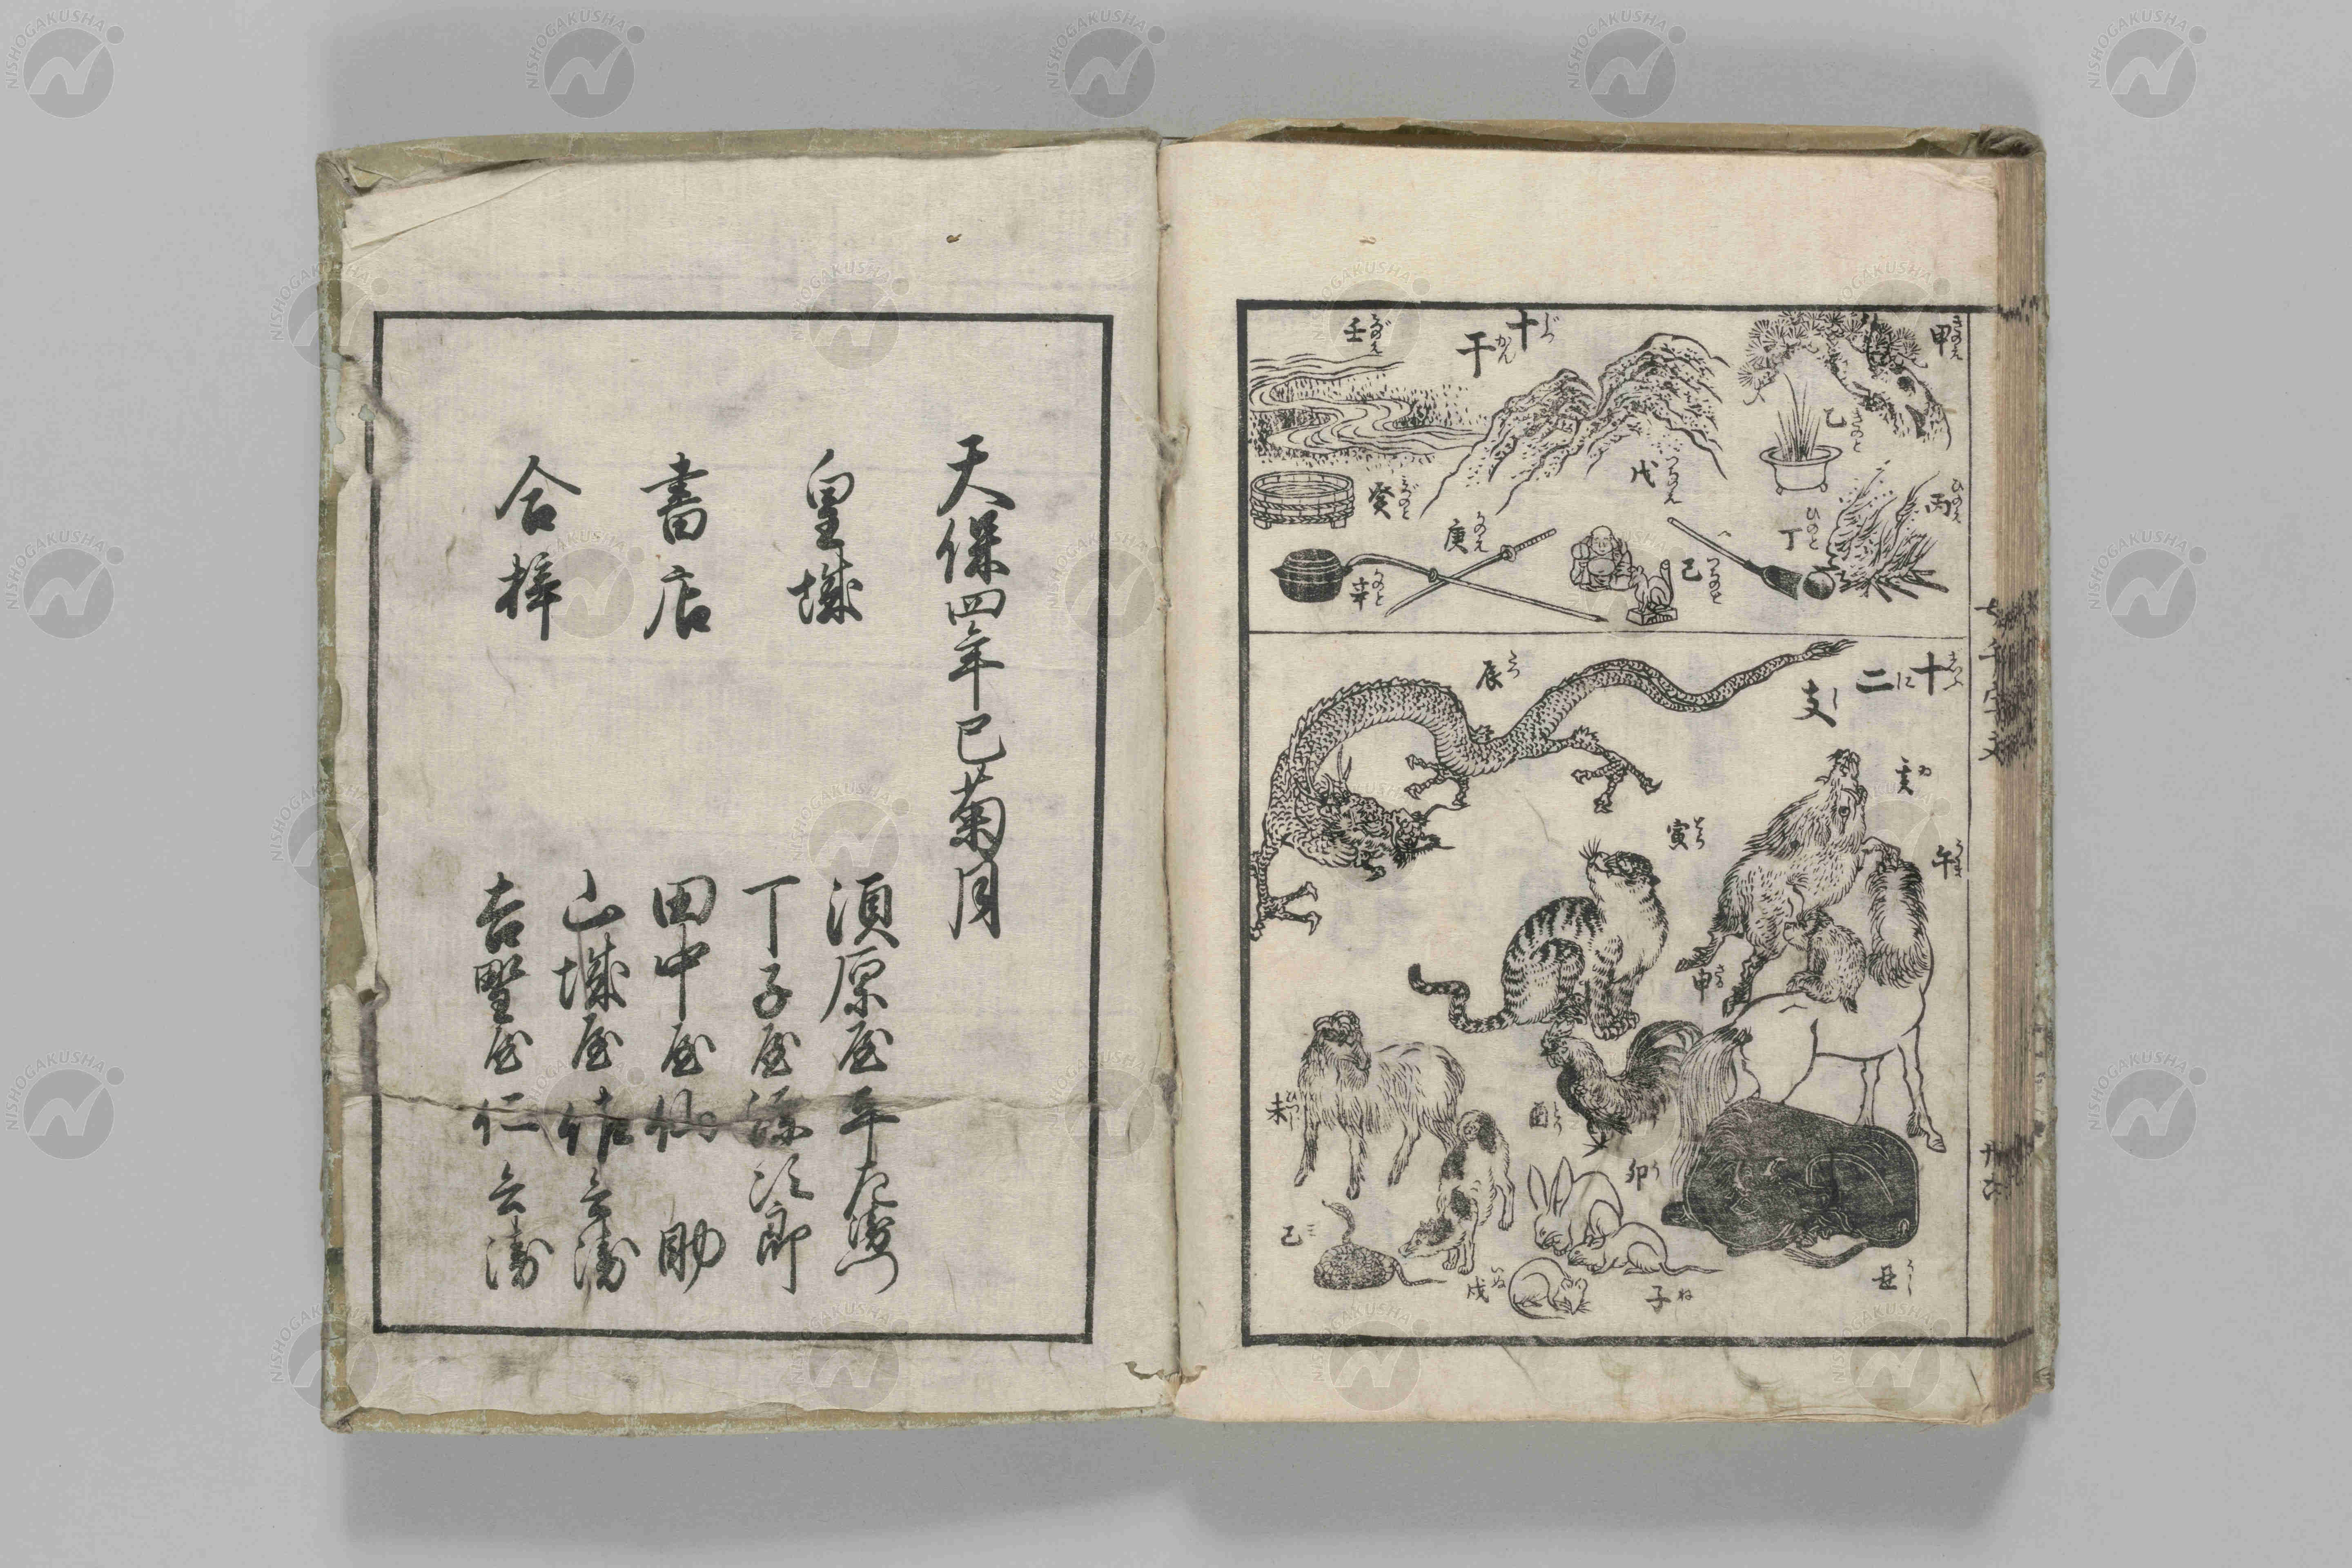 十干
じつかん
甲
きのえ
乙
きのと
丙
ひのえ
丁
ひのと
戊
つちのえ
己
つちのと
庚
かのえ
辛
かのと
壬
みづのえ
癸
みづのと
十二支
じふにし
亥
ゐ
午
うま
辰
たつ
寅
とら
申
さる
未
ひつじ
酉
とり
卯
う
巳
ミ
戌
いぬ
子
ね
丑
うし
天保四年巳菊月
皇城
書店
合梓
須原屋平左衛門
丁子屋源次郎
田中屋仙助
山城屋佐兵衛
吉野屋仁兵衛
NISHOGAKUSHA